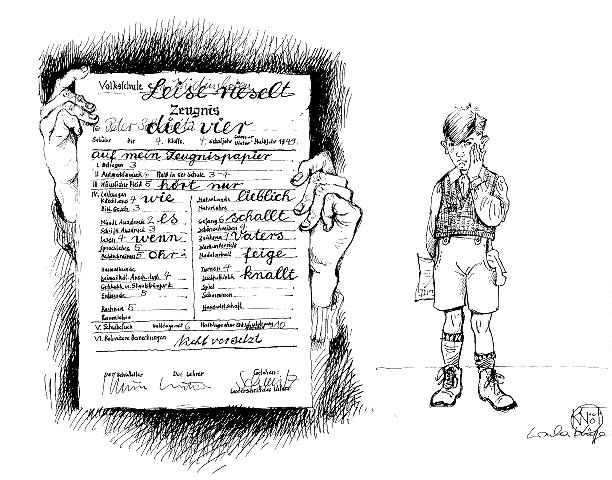 Volksschule
Leise rieselt
Zeugnis
für Peter
die vier
Schüler der 4. Klasse, 4. Schuljahr Halbjahr 1949
auf mein Zeugnispapier
I. Betragen 3
II Aufmerksamkeit 4 Platz in der Schule 3-4
III Häuslicher Fleiß 5 hört nur
IV. Leistungen
4 wie Naturkunde lieblich
Bibl. Gesch. 3 Naturlehre
Mündl. Ausdruck 2 es Gesang 6 schallt
Schriftl. Ausdruck 3 Schönschreiben 4
Lesen 4 wenn Zeichnen Vaters
Sprachlehre 5 Werkunterricht
Rechtschreiben 5 Ohr Nadelarbeit feige
Heimatkunde Turnen 4
4 knallt
Spiel
Erdkunde 5 Schwimmen
Rechnen 5 Hauswirtschaft
Raumlehre
V. Schulbesuch Halbtage mit 6 Halbtage ohne Entschuldigung 10
VI. Besondere Bemerkungen Nicht versetzt
Der Schulleiter Der Lehrer Gesehen:
Unterschrift des Vaters